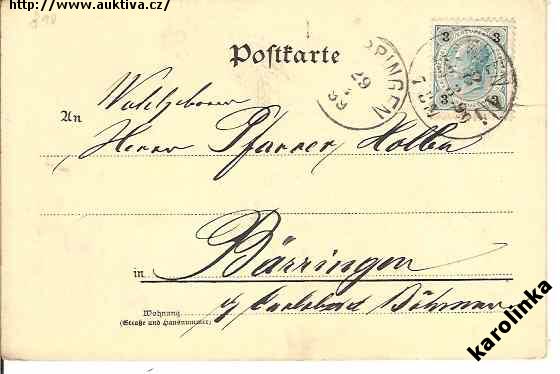 http://www.auktiva.cz/
Postkarte
3 3
3 3
PRINGEN
29
99
An
Wohlgeboren
Herrn Pfarrer
in Bärringen
b/ Carlsbad Böhmen
Wohnung
(Straße und Hausnummer)
karolinka